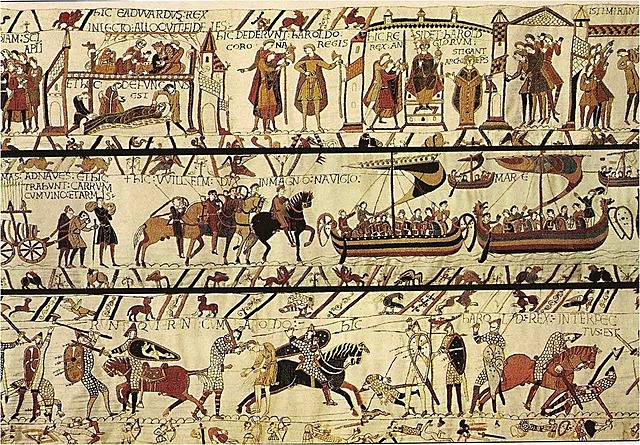 hIC EADVVARDVS:REX
INLECTO:ALLOQVIT:FIDELES:
ET hIC:DEFVNCTVS
EST
hIC DEDERVNT:hAROLDO:
CORONA REGIS
hIC RE SIDET:hAROLD
REX:AN GLORVM:
STIGANT
ARChIEPS
ISTI MIRANT
MAS:ADNAVES:ET hIC
TRAhVNT:CARRVM
CVM VINO:ET ARMIS:
hIC:VVILLELM:DVX INMAGNO:NAVIGIO:
MARE
hIC
hAROLD:REX:INTERFEC
TVS:EST